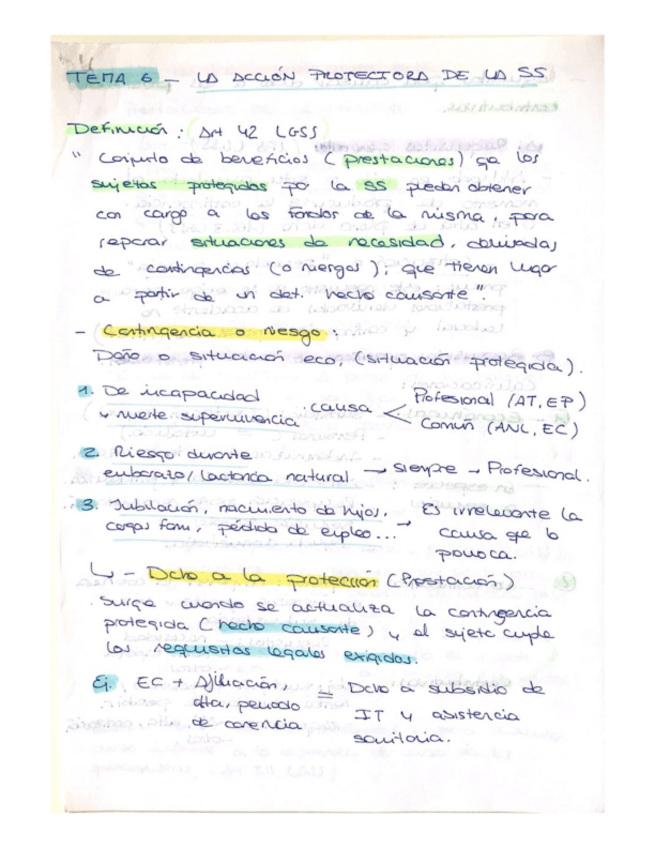 TEMA 6 – LA ACCIÓN PROTECTORA DE LA SS
Definición: Art 42 LGSS
" Conjunto de beneficios (prestaciones) qe los
sujetos protegidos por la SS pueden obtener
con cargo a los fondos de la misma, para
reparar situaciones de necesidad, derivadas
de contingencias (o riesgos), que tienen lugar
a partir de un det. "hecho causante".
– Contingencia o riesgo:
Daño o situación eco, (situación protegida).
1. De incapacidad
y muerte supervivencia
causa
Profesional (AT, EP)
Común (ANL, EC)
2. Riesgo durante
embarazo/lactancia natural → siempre → Profesional.
3. Jubilación, nacimiento de hijos,
cargas fam, pérdida de empleo... →
Es irrelevante la
causa qe lo
povoca.
↳ – Dcho a la protección (Prestación)
Surge cuando se actualiza la contingencia
protegida (hecho causante) y el sujeto cumple
los requisitos legales exigidos.
Ej. EC + Afiliación,
alta, periodo
de carencia
= Dcho a subsidio de
IT y asistencia
sanitaria.